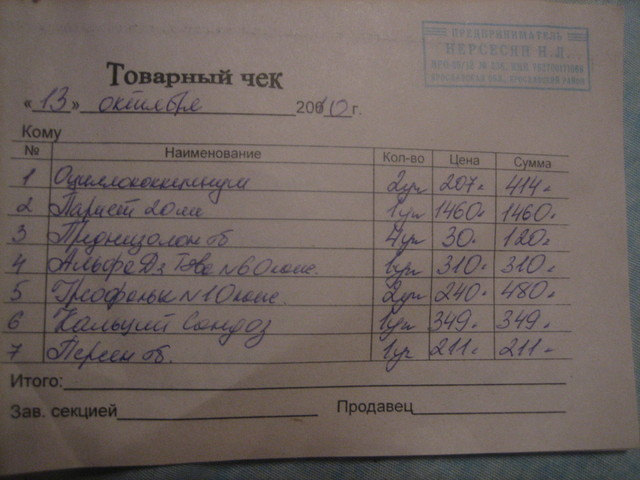 ПРЕДПРИНИМАТЕЛЬ
НЕРСЕСЯН
Товарный чек
«13» октября 20010 г.
Кому
№ Наименование Кол-во Цена Сумма
1 Оциллококкцинум 2уп 207= 414=
2 20мл 1уп 1460= 1460=
3 Преднизолон тб 4уп 30= 120=
4 Альфа Дз Тева N60 капс. 1уп 310= 310=
5 N10 капс. 2уп 240= 480=
6 Кальций Сандоз 1уп 349= 349=
7 Персен тб. 1уп 211= 211=
Итого:
Зав. секцией Продавец